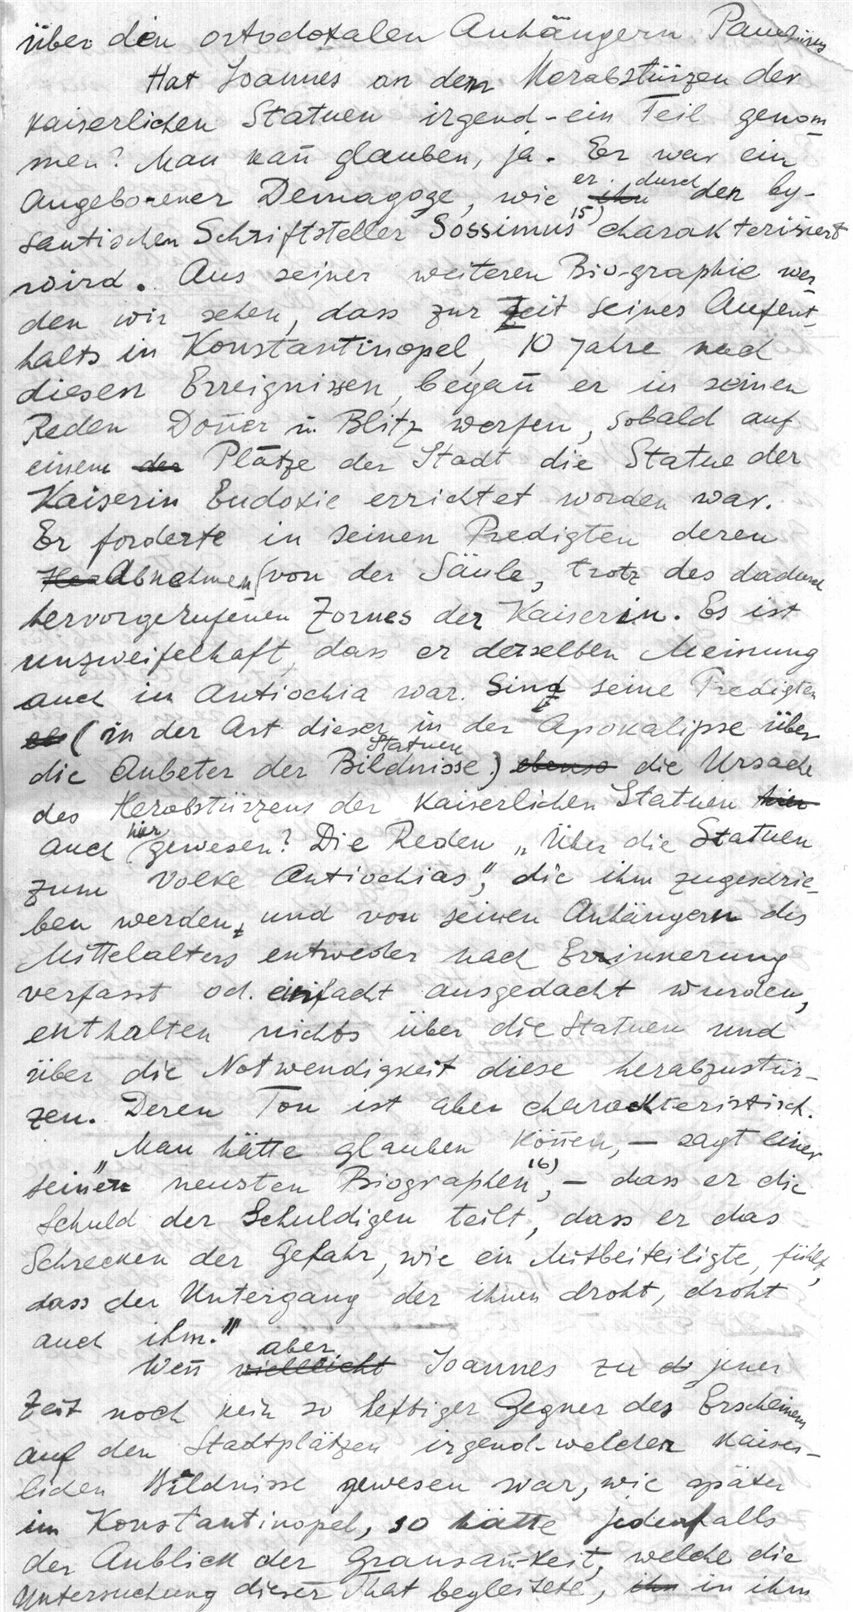 über den ortodoxalen Anhängern Paulinus
Hat Joannes an dem Herabstürzen der
kaiserlichen Statuen irgend-ein Teil genom-
men? Man kan̄ glauben, ja. Er war ein
Angeborener Demagoge, wie er durch den by-
santischen Schriftsteller Sossimus 15) charakterisiert
wird. Aus seiner weiteren Bio-graphie wer-
den wir sehen, dass zur Zeit seines Aufent-
halts in Konstantinopel, 10 Jahre nach
diesen Erreignissen, began̄ er in seinen
Reden Don̄er u. Blitz werfen, sobald auf
einem der Plätze der Stadt die Statue der
Kaiserin Eudoxie errichtet worden war.
Er forderte in seinen Predigten deren
Abnehmen von der Säule, trotz des dadurch
hervorgerufenen Zornes der Kaiserin. Es ist
unzweifelhaft, dass er derselben Meinung
auch in Antiochia war. Sind seine Predigten
(in der Art dieser in der Apokalipse über
die Anbeter der Bildnisse Statuen) ebenso die Ursache
des Herabstürzens der kaiserlichen Statuen hier
auch hier gewesen? Die Reden „Über die Statuen
zum Volke Antiochias", die ihm zugeschrie-
ben werden, und von seinen Anhängern des
Mittelalters entweder nach Errinnerung
verfasst od. einfach ausgedacht wurden,
enthalten nichts über die Statuen und
über die Notwendigkeit diese herabzustür-
zen. Deren Ton ist aber charackteristisch.
„Man hätte glauben kön̄en, — sagt einer
seiner neusten Biographen 16), — dass er die
Schuld der Schuldigen teilt, dass er das
Schrecken der Gefahr, wie ein Mitbeiteiligte, fühlt,
dass der Untergang der ihnen droht, droht
auch ihm."
Wen̄ vielleicht aber Joannes zu jener
Zeit noch kein so heftiger Gegner des Erscheinens
auf den Stadtplätzen irgend-welcher kaiser-
lichen Bildnisse gewesen war, wie später
in Konstantinopel, so hätte jedenfalls
der Anblick der Grausam̄keit, welche die
Untersuchung dieser That begleitete, ihn in ihm